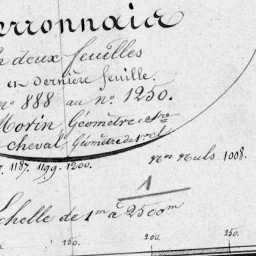 erronnais
deux feuilles
et dernière feuille.
no 888 au no 1250.
Morin Géomètre en
cheval Géomètre de 1re cl
1187. 1199. 1200. Nos Nuls 1008.
1
Echelle de 1m à 2500m
150. 200. 250.